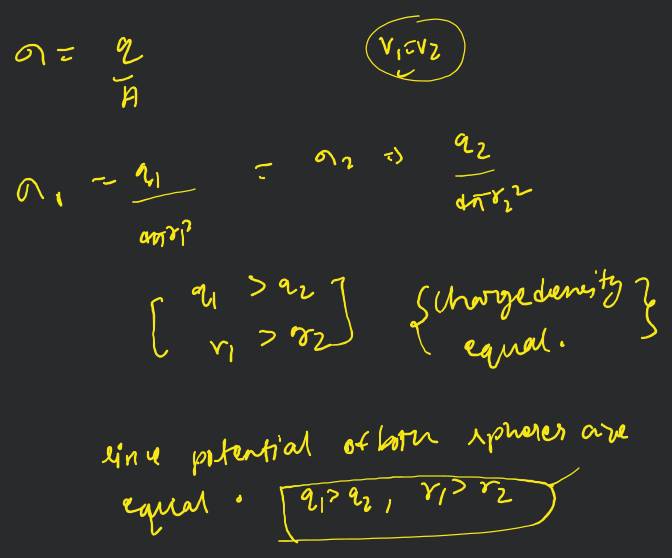 σ = q/A
V₁ = V₂
σ₁ = q₁/4πr₁² = σ₂ ⇒ q₂/4πr₂²
[ q₁ > q₂
r₁ > r₂ ]
{ charge density
equal. }
since potential of both spheres are
equal. q₁ > q₂, r₁ > r₂